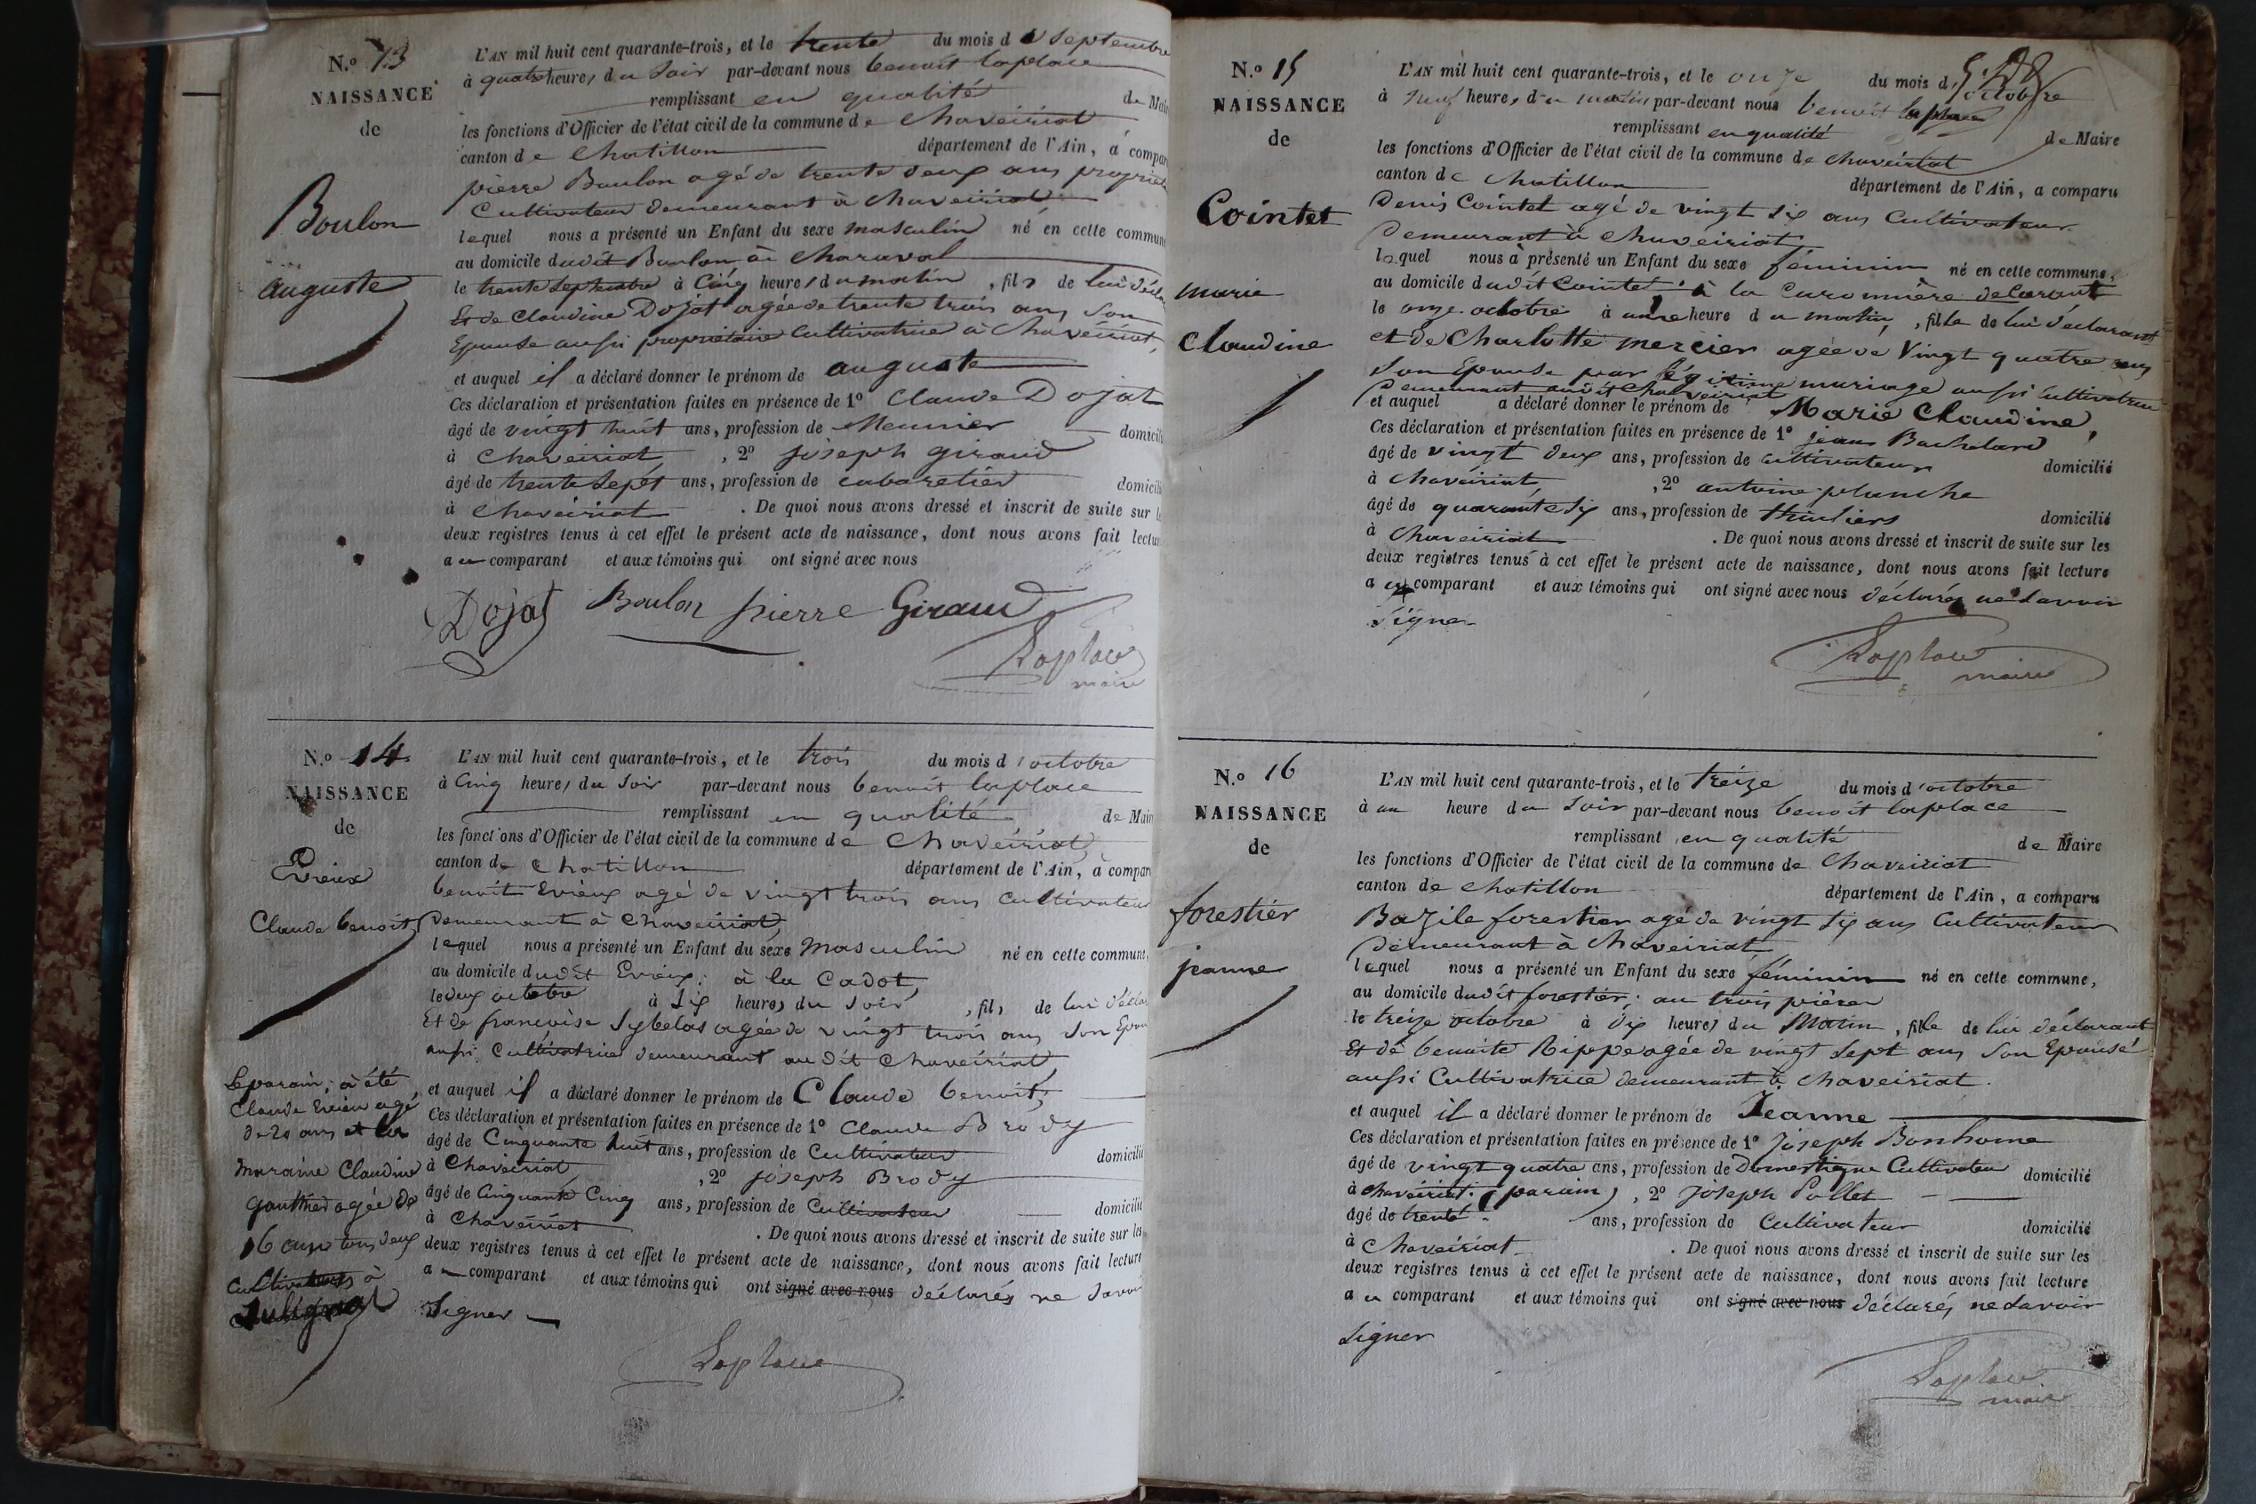 N.o 13
NAISSANCE
de
Boulon
auguste
L'AN mil huit cent quarante-trois, et le trente du mois de septembre
à quatre heures du soir par-devant nous benoit laplace
remplissant en qualité de Mai
les fonctions d'Officier de l'état civil de la commune de Chaveiriat
canton de Chatillon département de l'Ain, a compar
pierre Boulon agé de trente deux ans propriét
Cultivateur demeurant à Chaveiriat
lequel nous a présenté un Enfant du sexe masculin né en cette commun
au domicile dudit Boulon à Charaval
le trente Septembre à Cinq heures du matin, fils de lui décla
Et de Claudine Dojat agée de trente trois ans Son
Epouse aussi propriétaire Cultivatrice à Chaveiriat,
et auquel il a déclaré donner le prénom de auguste
Ces déclaration et présentation faites en présence de 1o Claude Dojat
âgé de vingt huit ans, profession de Meunier domicili
à Chaveiriat, 2o joseph giraud
âgé de trente Sept ans, profession de cabaretier domicili
à Chaveiriat. De quoi nous avons dressé et inscrit de suite sur le
deux registres tenus à cet effet le présent acte de naissance, dont nous avons fait lectur
au comparant et aux témoins qui ont signé avec nous
Dojat Boulon pierre Giraud
Laplace
maire
N.o 14
NAISSANCE
de
Evieux
Claude benoit
L'AN mil huit cent quarante-trois, et le trois du mois d'octobre
à Cinq heures du Soir par-devant nous benoit laplace
remplissant en qualité de Mair
les fonctions d'Officier de l'état civil de la commune de Chaveiriat
canton de Chatillon département de l'Ain, à compar
benoit Evieux agé de vingt trois ans Cultivateur
Demeurant à Chaveiriat
lequel nous a présenté un Enfant du sexe Masculin né en cette commune
au domicile dudit Evieux: à la Cadot,
le deux octobre à Six heures du Soir, fils de lui décla
Et de françoise Sybelas agée de vingt trois ans Son Epou
aussi Cultivatrice demeurant audit Chaveiriat
et auquel il a déclaré donner le prénom de Claude benoit,
Ces déclaration et présentation faites en présence de 1o Claude Brody
âgé de Cinquante huit ans, profession de Cultivateur domicilié
à Chaveiriat, 2o joseph Brody
âgé de Cinquante Cinq ans, profession de Cultivateur domicilié
à Chaveiriat. De quoi nous avons dressé et inscrit de suite sur les
deux registres tenus à cet effet le présent acte de naissance, dont nous avons fait lecture
au comparant et aux témoins qui ont signé avec nous déclarés ne Savoir
Signer
Laplace
Le parain; à été
Claude Evieux agé
de 20 ans et la
maraine Claudine
gauthier agée de
16 ans tous deux
Cultivateurs à
N.o 15
NAISSANCE
de
Cointet
marie
Claudine
L'AN mil huit cent quarante-trois, et le onze du mois d'octobre
à Neuf heures du matin par-devant nous benoit laplace
remplissant en qualité de Maire
les fonctions d'Officier de l'état civil de la commune de Chaveiriat
canton de Chatillon département de l'Ain, a comparu
Denis Cointet agé de vingt Six ans Cultivateur
Demeurant à Chaveiriat
lequel nous à présenté un Enfant du sexe féminin né en cette commune,
au domicile dudit Cointet: à la Caronnière
le onze octobre à une heure du matin, fille de lui déclarant
et de Charlotte mercier agée de Vingt quatre ans
Son Epouse par légitime mariage aussi Cultivatrice
Demeurant audit Chaveiriat
et auquel a déclaré donner le prénom de Marie Claudine,
Ces déclaration et présentation faites en présence de 1o jean Bachelard
âgé de vingt deux ans, profession de Cultivateur domicilié
à Chaveiriat, 2o antoine planche
âgé de quarante Six ans, profession de domicilié
à Chaveiriat. De quoi nous avons dressé et inscrit de suite sur les
deux registres tenus à cet effet le présent acte de naissance, dont nous avons fait lecture
au comparant et aux témoins qui ont signé avec nous déclarés ne Savoir
Signer
Laplace
maire
N.o 16
NAISSANCE
de
forestier
jeanne
L'AN mil huit cent quarante-trois, et le treize du mois d'octobre
à un heure du Soir par-devant nous benoit laplace
remplissant en qualité de Maire
les fonctions d'Officier de l'état civil de la commune de Chaveiriat
canton de Chatillon département de l'Ain, a comparu
Bazile forestier agé de vingt Six ans Cultivateur
Demeurant à Chaveiriat
lequel nous a présenté un Enfant du sexe féminin né en cette commune,
au domicile dudit forestier; au trois
le treize octobre à dix heures du Matin, fille de lui déclarant
Et de benoite Rippe agée de vingt Sept ans Son Epouse
aussi Cultivatrice demeurant à Chaveiriat.
et auquel il a déclaré donner le prénom de Jeanne
Ces déclaration et présentation faites en présence de 1o joseph Bonhome
âgé de vingt quatre ans, profession de Domestique Cultivateur domicilié
à Chaveiriat (parain), 2o joseph Pollet
âgé de trente ans, profession de Cultivateur domicilié
à Chaveiriat. De quoi nous avons dressé et inscrit de suite sur les
deux registres tenus à cet effet le présent acte de naissance, dont nous avons fait lecture
au comparant et aux témoins qui ont signé avec nous déclarés ne Savoir
Signer
Laplace
maire